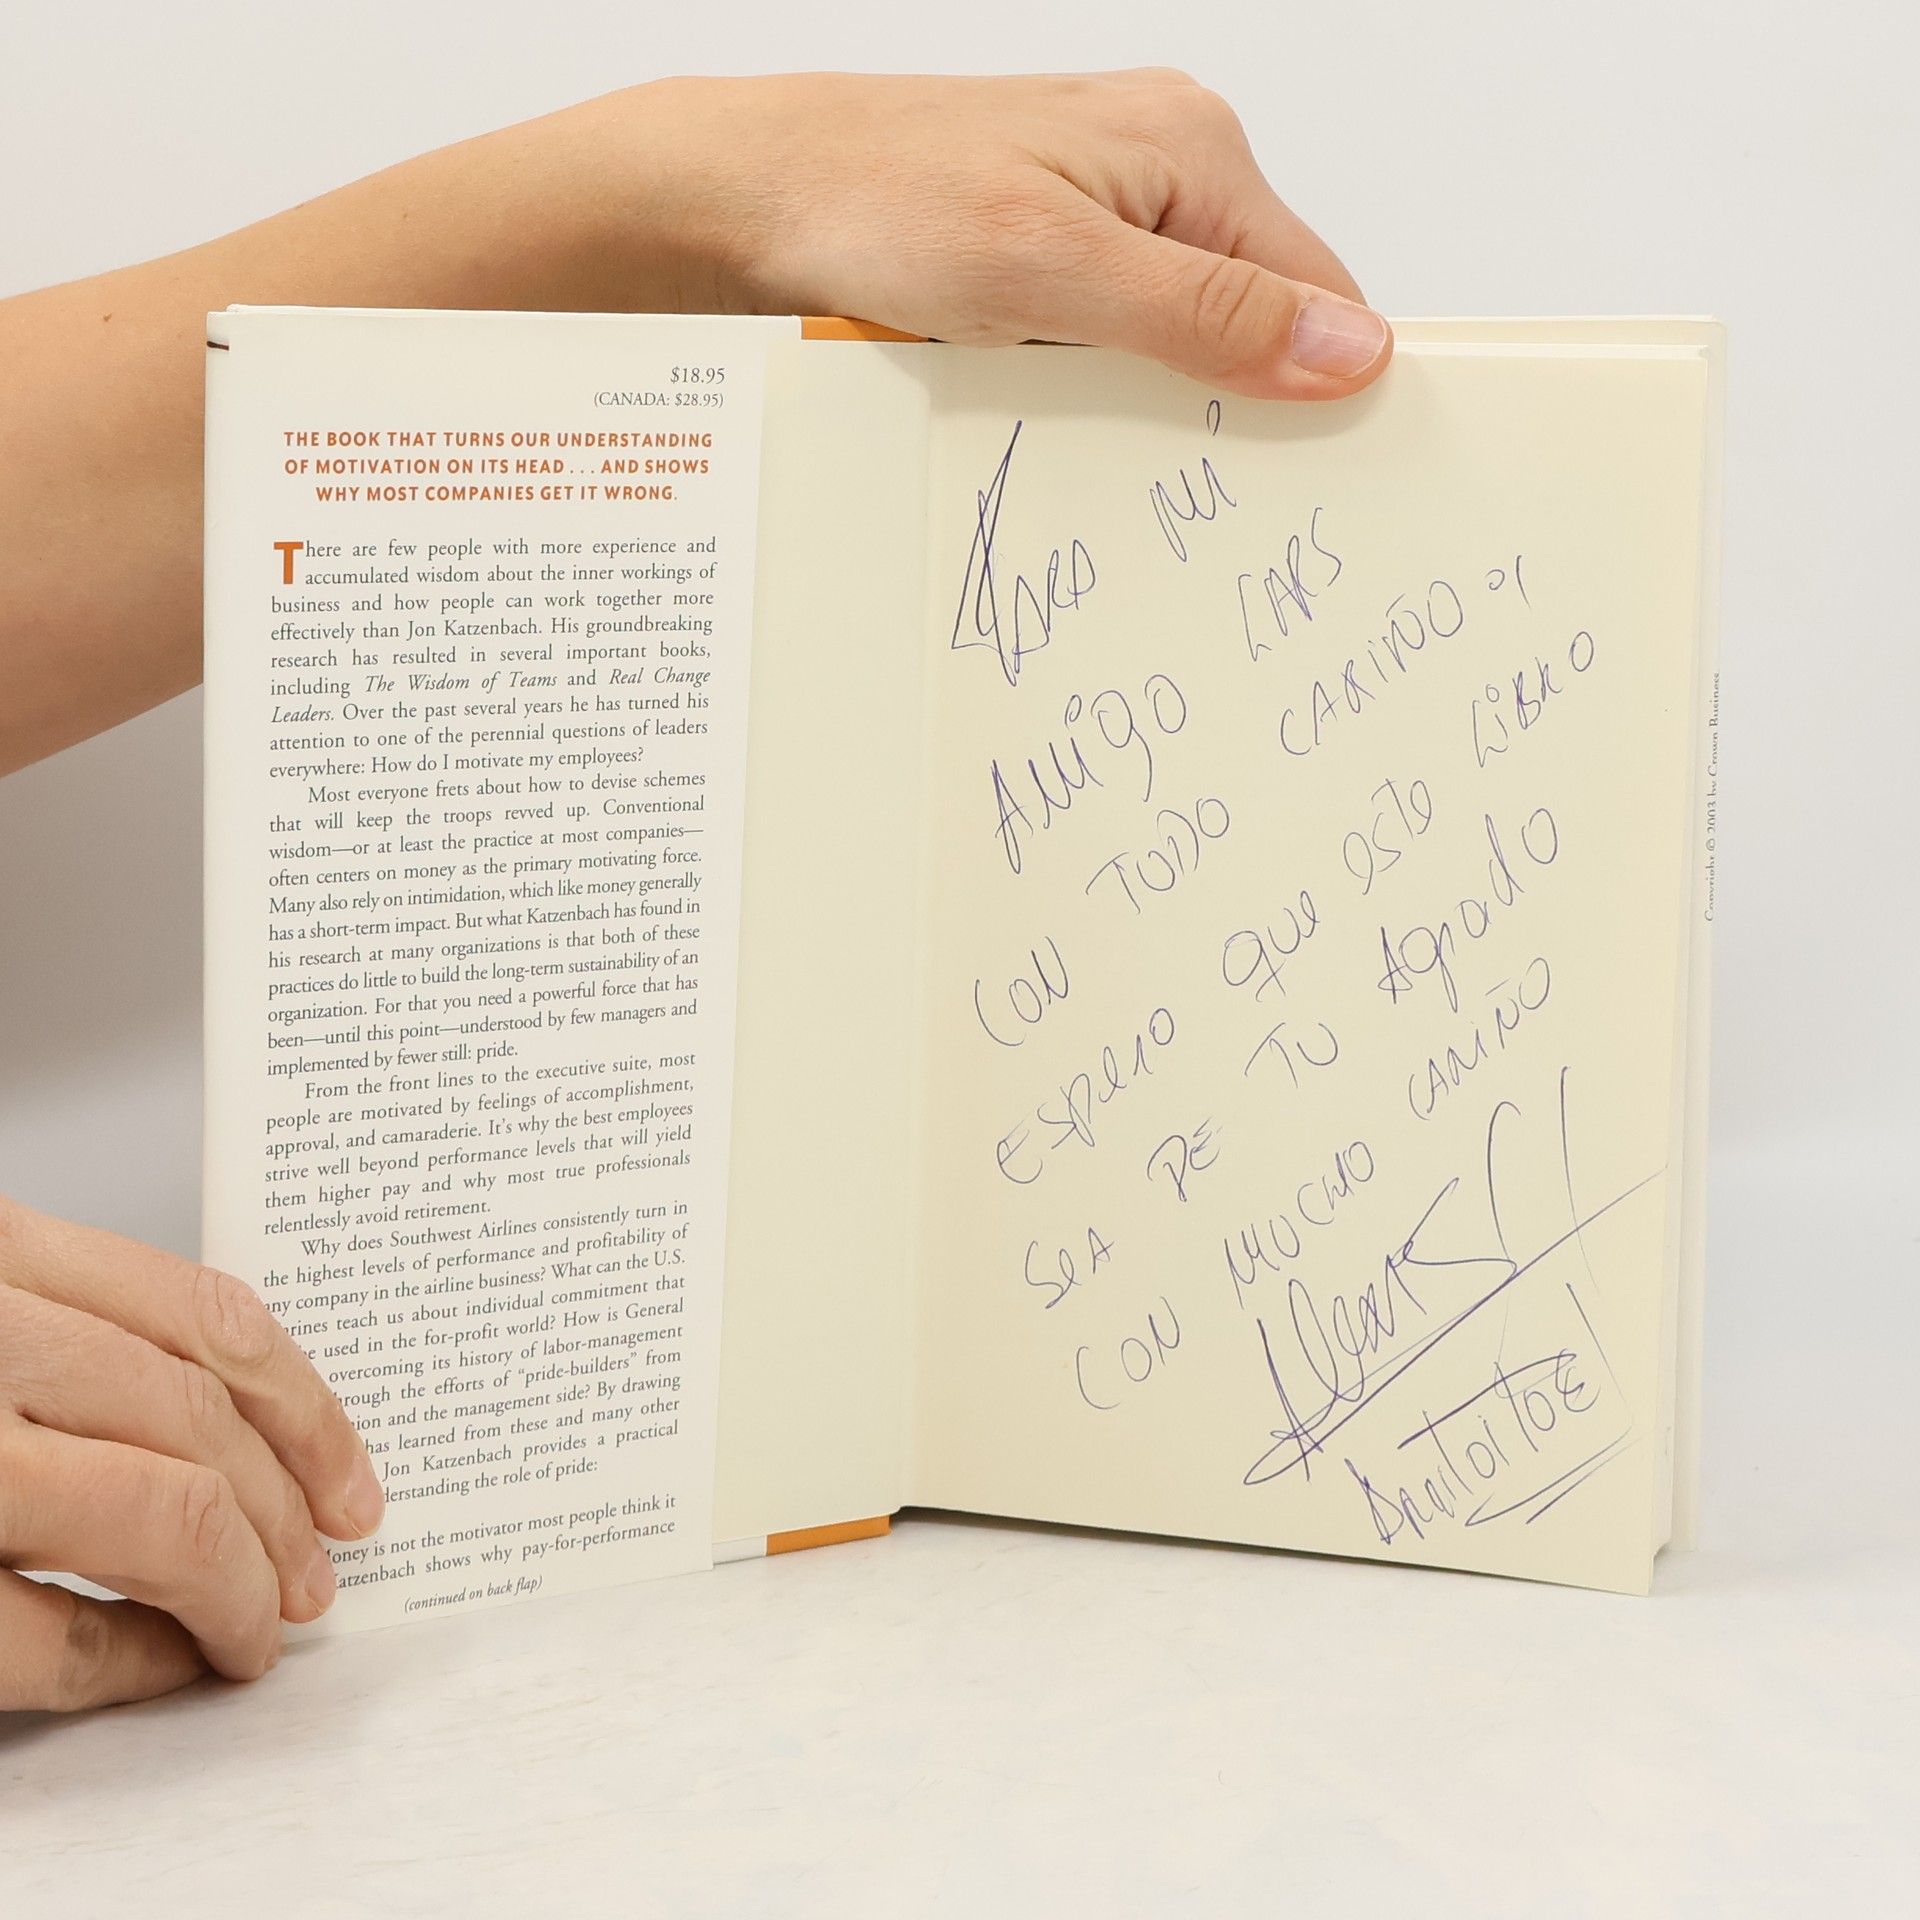 $18.95
(CANADA: $28.95)
THE BOOK THAT TURNS OUR UNDERSTANDING
OF MOTIVATION ON ITS HEAD . . . AND SHOWS
WHY MOST COMPANIES GET IT WRONG.
There are few people with more experience and
accumulated wisdom about the inner workings of
business and how people can work together more
effectively than Jon Katzenbach. His groundbreaking
research has resulted in several important books,
including The Wisdom of Teams and Real Change
Leaders. Over the past several years he has turned his
attention to one of the perennial questions of leaders
everywhere: How do I motivate my employees?
Most everyone frets about how to devise schemes
that will keep the troops revved up. Conventional
wisdom—or at least the practice at most companies—
often centers on money as the primary motivating force.
Many also rely on intimidation, which like money generally
has a short-term impact. But what Katzenbach has found in
his research at many organizations is that both of these
practices do little to build the long-term sustainability of an
organization. For that you need a powerful force that has
been—until this point—understood by few managers and
implemented by fewer still: pride.
From the front lines to the executive suite, most
people are motivated by feelings of accomplishment,
approval, and camaraderie. It's why the best employees
strive well beyond performance levels that will yield
them higher pay and why most true professionals
relentlessly avoid retirement.
Why does Southwest Airlines consistently turn in
the highest levels of performance and profitability of
any company in the airline business? What can the U.S.
rines teach us about individual commitment that
e used in the for-profit world? How is General
overcoming its history of labor-management
hrough the efforts of "pride-builders" from
ion and the management side? By drawing
has learned from these and many other
Jon Katzenbach provides a practical
derstanding the role of pride:
oney is not the motivator most people think it
atzenbach shows why pay-for-performance
(continued on back flap)
PARA MI
AMIGO LARS
CON TODO CARIÑO y
ESPERO que este LiBRO
SeA DE TU AgRado
CON MUCHO CARIÑO
Copyright © 2003 by Crown Business